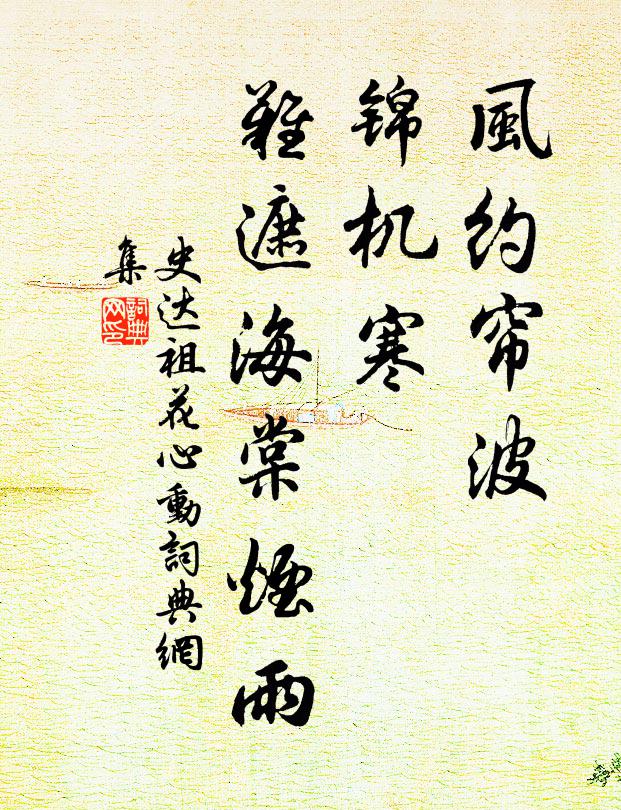 風约帘波
锦机寒
難遮海棠煙雨
史达祖花心動詞典網
集
詞典网印